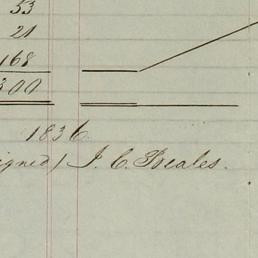 53
21
168
300
1836
igned) J. C. Beales.